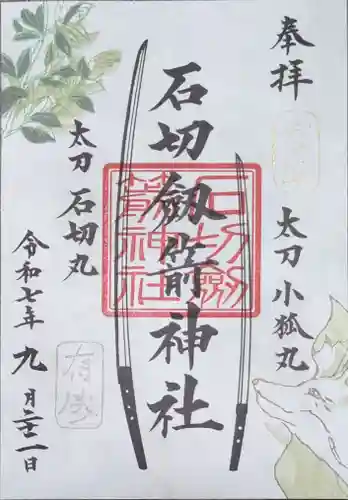 奉拝
太刀 小狐丸
石切劔箭神社
太刀 石切丸
令和七年 九月二十一日
石切劔箭神社